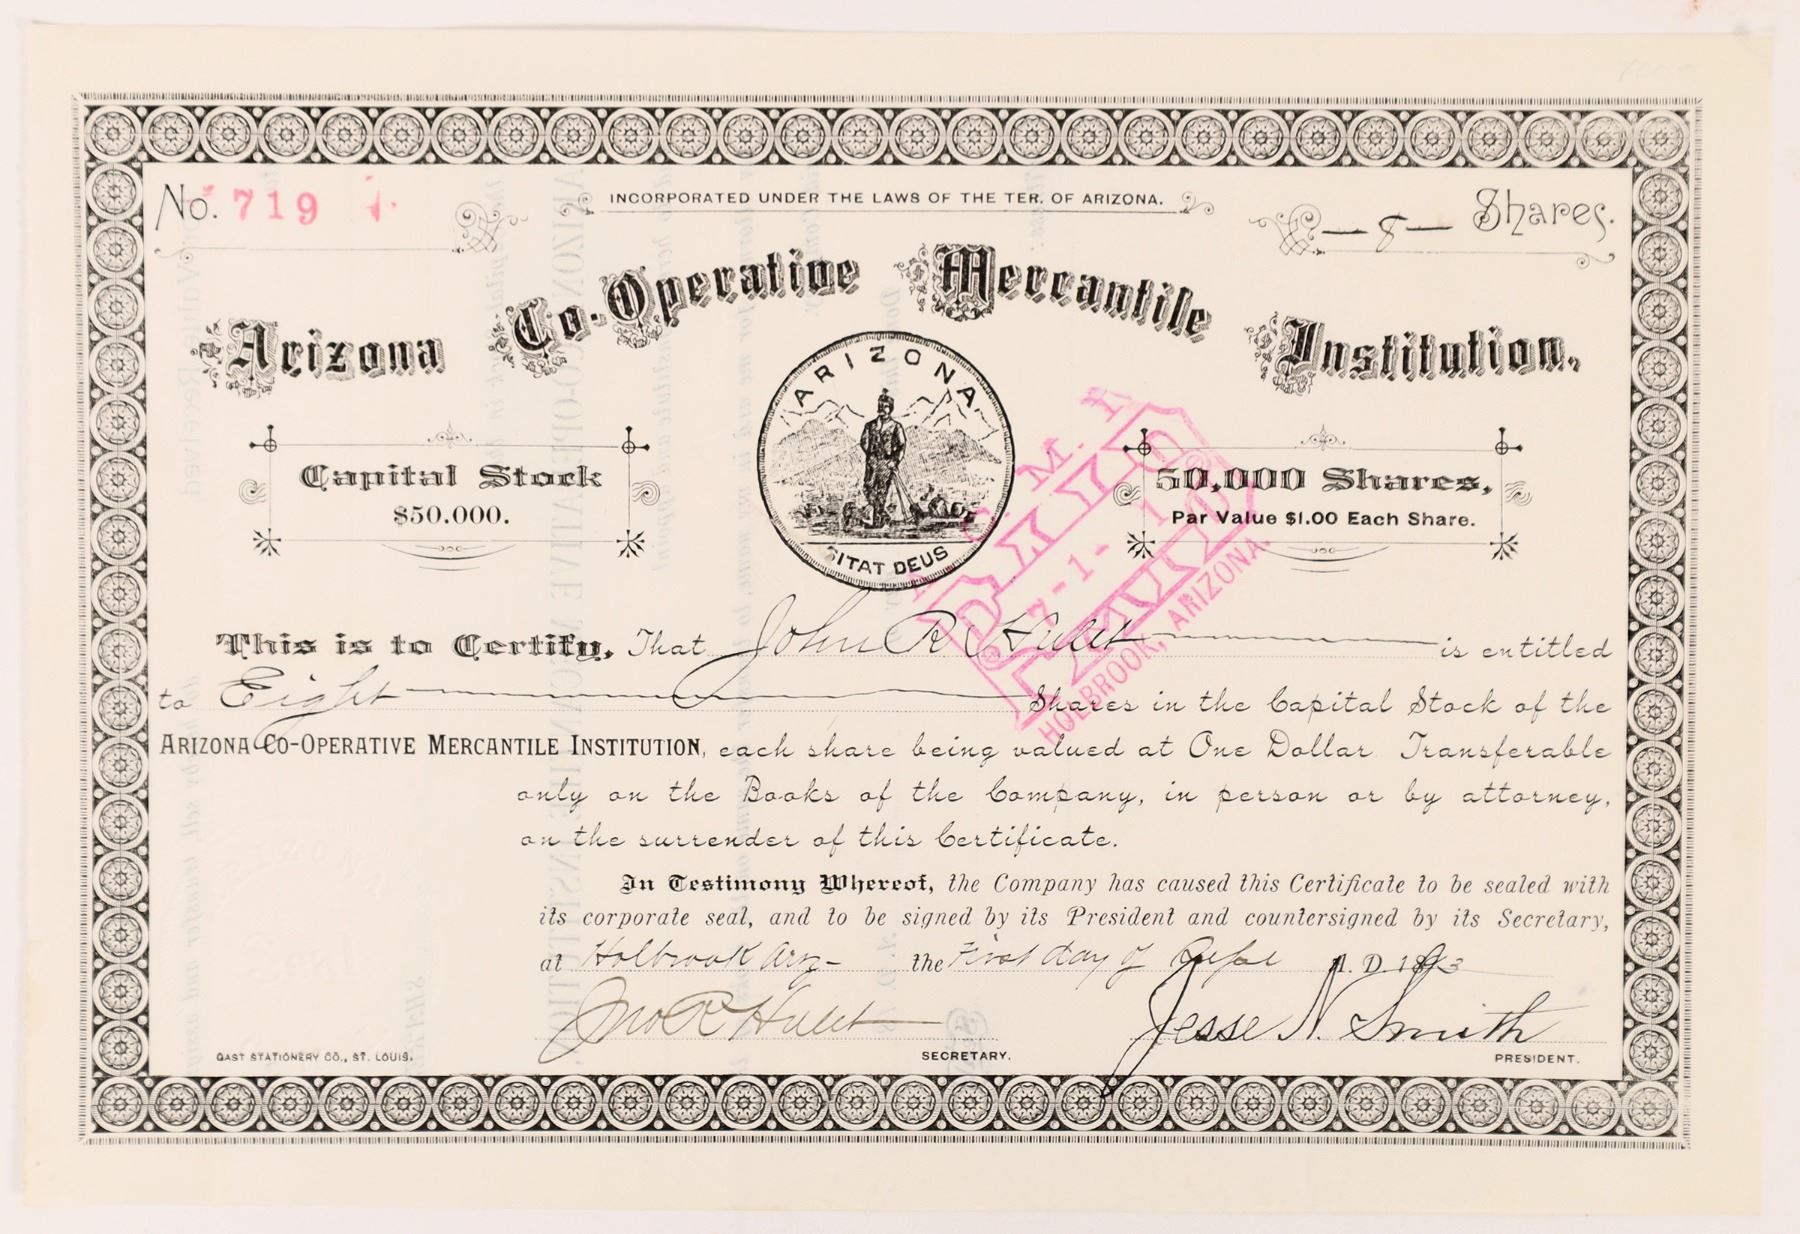 No. 719
INCORPORATED UNDER THE LAWS OF THE TER. OF ARIZONA.
— 8 — Shares.
Arizona Co-Operative Mercantile Institution,
ARIZONA
SITAT DEUS
Capital Stock
$50.000.
50,000 Shares,
Par Value $1.00 Each Share.
A. C. M. I.
PAID
7-1-
HOLBROOK, ARIZONA.
This is to Certify, That John R Hulet is entitled
to Eight Shares in the Capital Stock of the
ARIZONA CO-OPERATIVE MERCANTILE INSTITUTION, each share being valued at One Dollar Transferable
only on the Books of the Company, in person or by attorney,
on the surrender of this Certificate.
In Testimony Whereof, the Company has caused this Certificate to be sealed with
its corporate seal, and to be signed by its President and countersigned by its Secretary,
at Holbrook Ariz- the First day of A. D. 1893
Jno R Hulet
Jesse N. Smith
GAST STATIONERY CO., ST. LOUIS.
SECRETARY.
PRESIDENT.